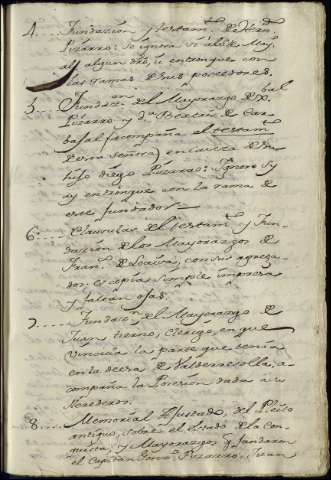 4. Fundación y testam.to de Her.
Pizarro: se ignora si a los May.
ay algun dro, ú entronque con
las ramas de sus poseedores.
5. Fundaz.on del Mayorazgo de
Pizarro y D.a Beatriz de Car-
bajal (acompaña el testam.
de esta Señora) en caveza de su
hijo diego Pizarro: Ignoro si
ay entronque con la rama de
este fundador
6. Clausulas del testam.to y Fun-
dacion de los Mayorazgos de
Fran.co de Loaisa, con sus agrega-
dos: es copia simple impresa
y faltan ojas.
7. Fundaz.on del Mayorazgo de
Juan tierno, Clerigo, en que
vincula la parte que tenia
en la deesa de Valdemesilla; a-
compaña la Posesion dada a su
Heredero.
8. Memorial Ajustado, del Pleito
antiguo, sobre el Estado de la Con-
quista, y Mayorazgos q.e fundaron
el Capitan Gonz.o Pizarro, Juan